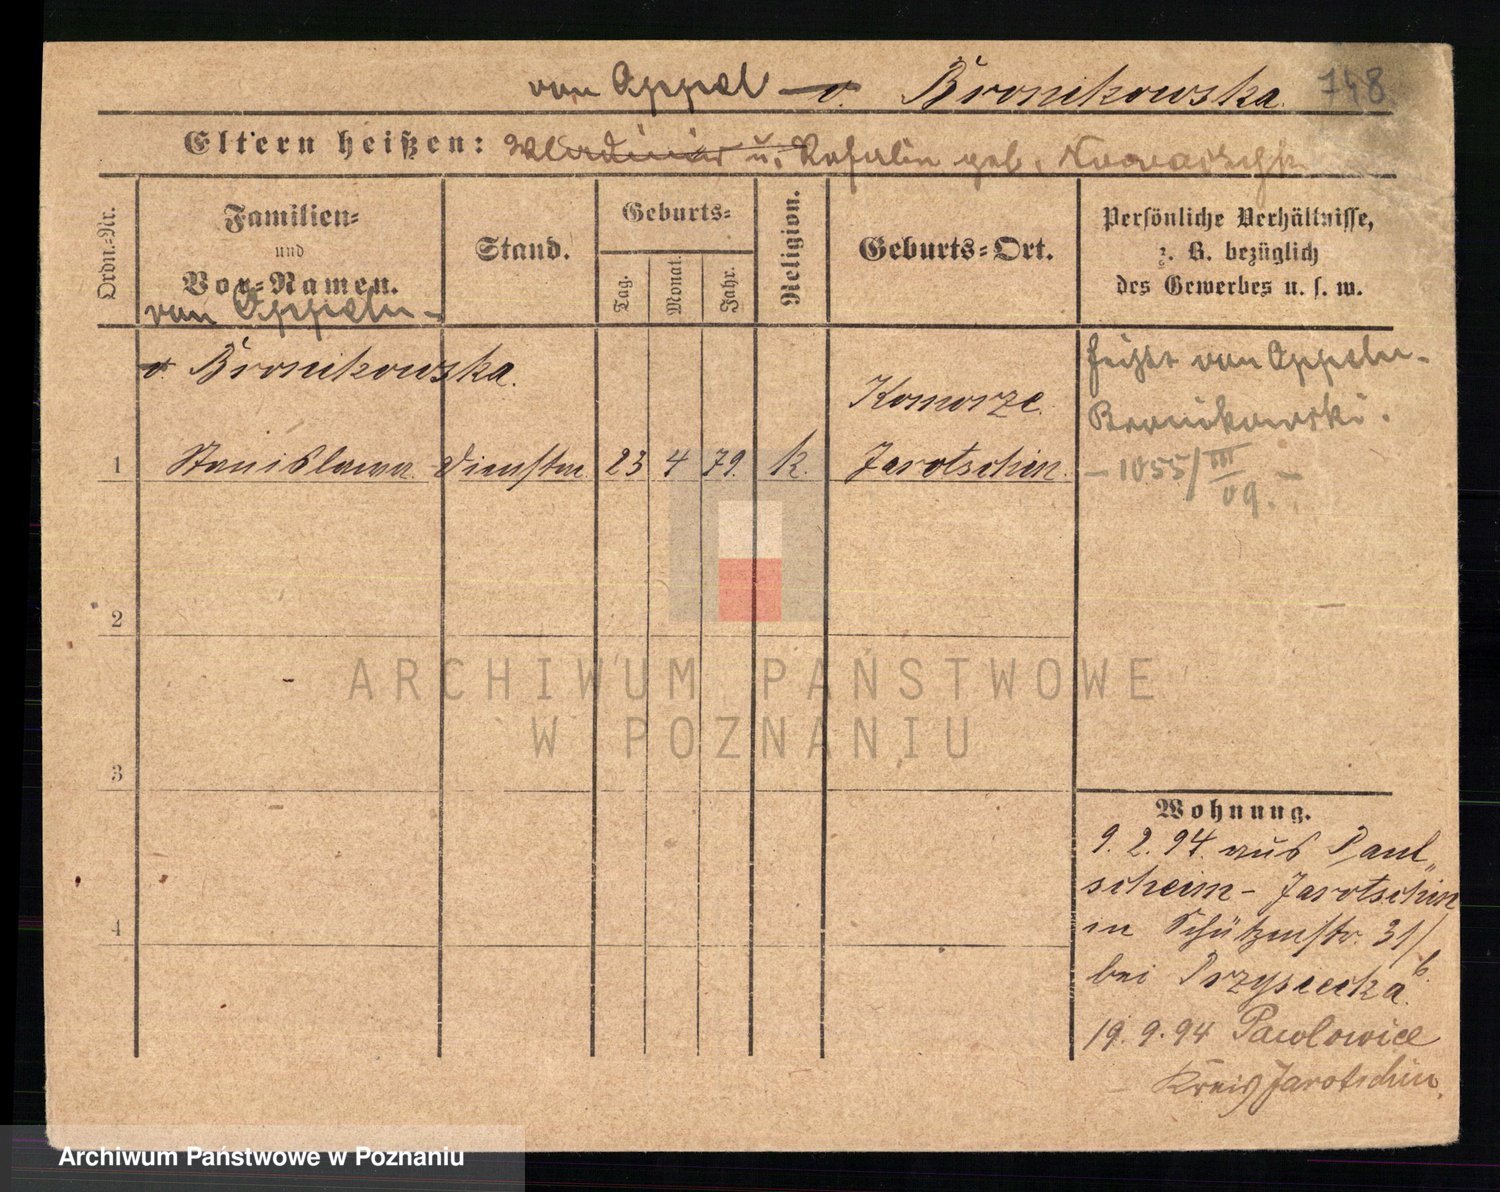 von Appel v. Bronikowska. 748
Eltern heißen: Wladimir u. geb.
Ordn.-Nr.
Familien-
und
Vor-Namen.
Stand.
Geburts-
Tag.
Monat.
Jahr.
Religion.
Geburts-Ort.
Persönliche Verhältnisse,
z. B. bezüglich
des Gewerbes u. s. w.
von Appeln-
v. Bronikowska.
1 Stanislawa Dienstm. 23 4 79. k.
Komorze.
Jarotschin.
heißt von Appeln-
Bronikowski.
- 1055/III
09. -
2
3
4
Wohnung.
9. 2. 94. aus Paul„
scheim - Jarotschin
in Schützenstr. 31/
bei Przysiecka b.
19. 9. 94 Pawlowice
Kreis Jarotschin.
ARCHIWUM PAŃSTWOWE
W POZNANIU
Archiwum Państwowe w Poznaniu